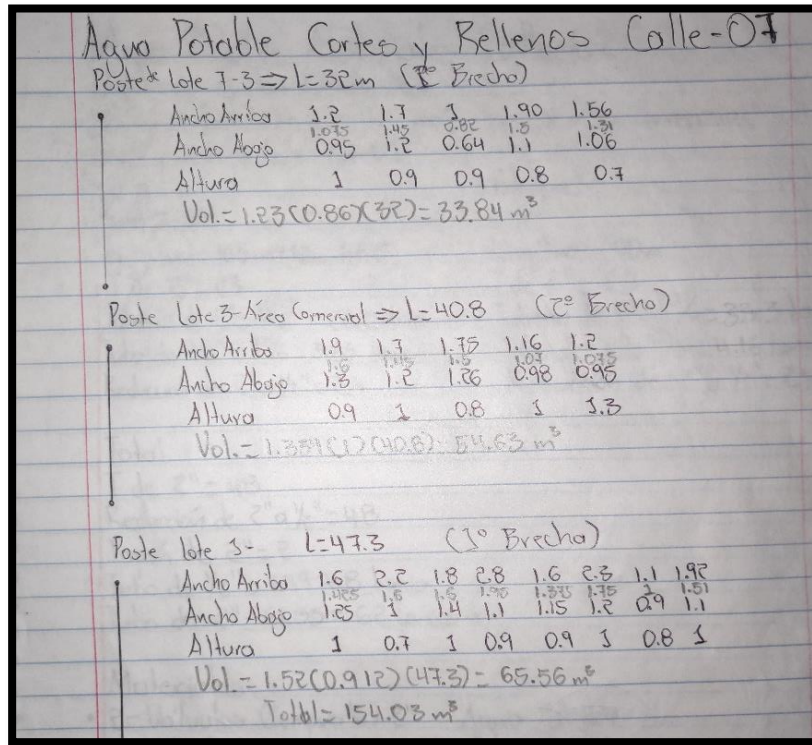 Agua Potable Cortes y Rellenos Calle-07
Poste Lote 7-3 ⇒ L=32m (1º Brecha)
Ancho Arriba 1.2 1.7 1 1.90 1.56
1.075 1.45 0.82 1.5 1.31
Ancho Abajo 0.95 1.2 0.64 1.1 1.06
Altura 1 0.9 0.9 0.8 0.7
Vol.=1.23(0.86)(32)=33.84 m³
Poste Lote 3-Área Comercial ⇒ L=40.8 (2º Brecha)
Ancho Arriba 1.9 1.7 1.75 1.16 1.2
1.6 1.45 1.5 1.07 1.075
Ancho Abajo 1.3 1.2 1.26 0.98 0.95
Altura 0.9 1 0.8 1 1.3
Vol.=1.339(1)(40.8)=54.63 m³
Poste Lote 3- L=47.3 (3º Brecha)
Ancho Arriba 1.6 2.2 1.8 2.8 1.6 2.3 1.1 1.92
1.425 1.6 1.6 1.95 1.375 1.75 1 1.51
Ancho Abajo 1.25 1 1.4 1.1 1.15 1.2 0.9 1.1
Altura 1 0.7 1 0.9 0.9 1 0.8 1
Vol.=1.52(0.912)(47.3)=65.56 m³
Total=154.03 m³